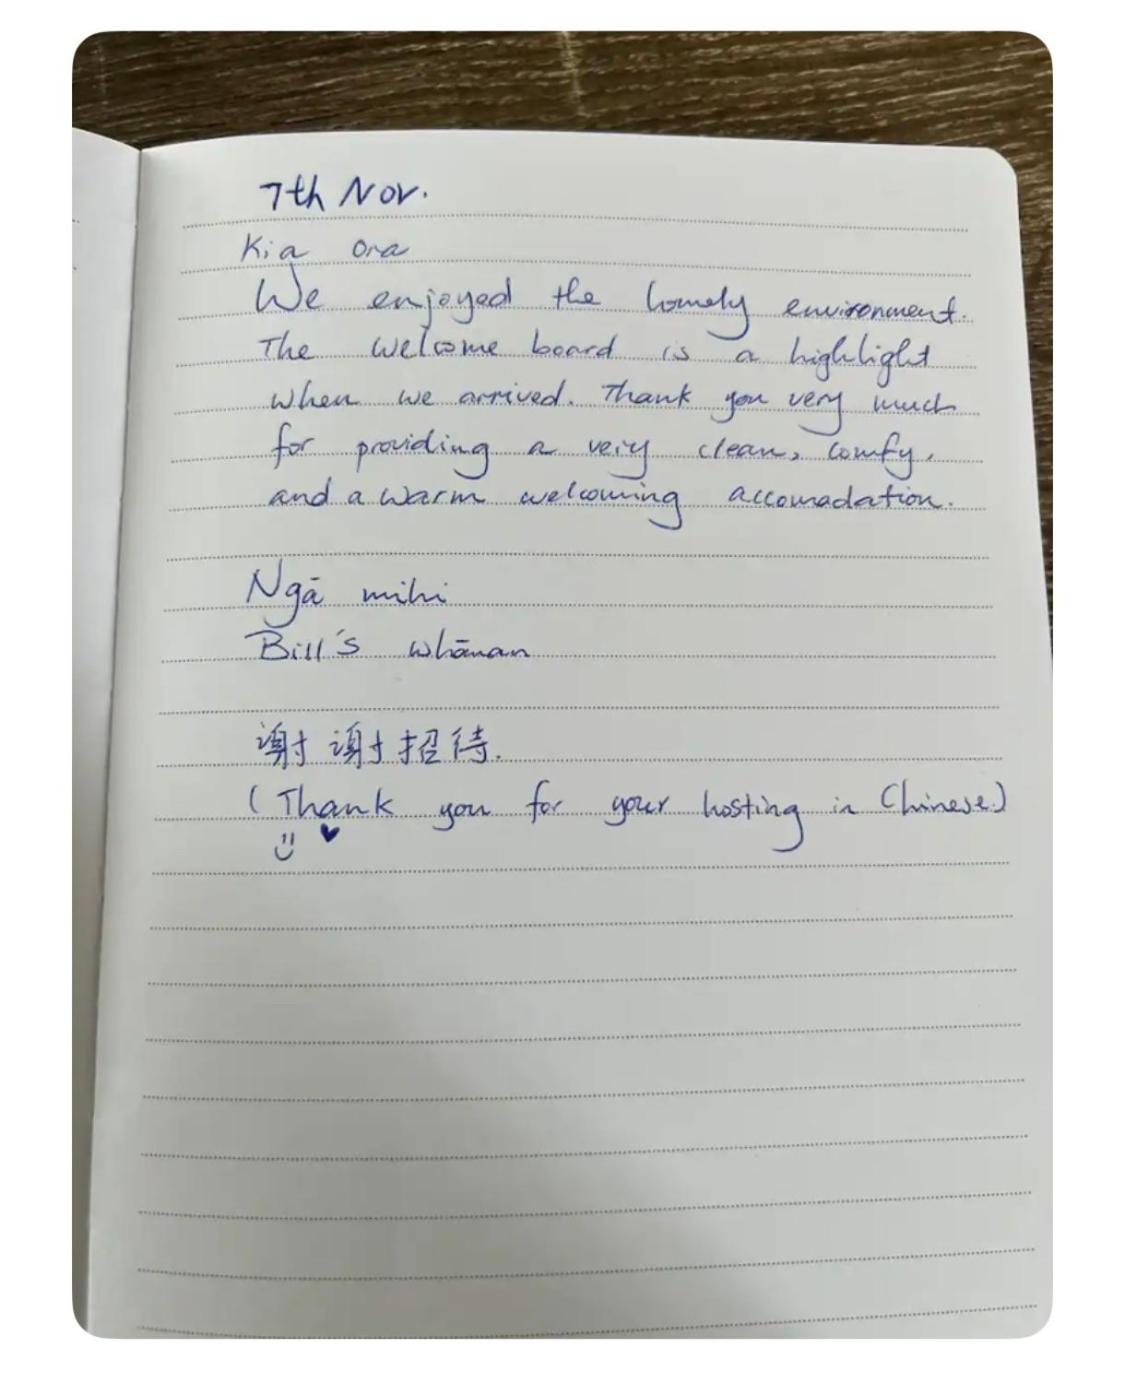 7th Nov.
Kia ora
We enjoyed the homely environment.
The welcome board is a highlight
when we arrived. Thank you very much
for providing a very clean, comfy,
and a warm welcoming accomodation.
Ngā mihi
Bill's whānau
谢谢招待.
(Thank you for your hosting in Chinese)